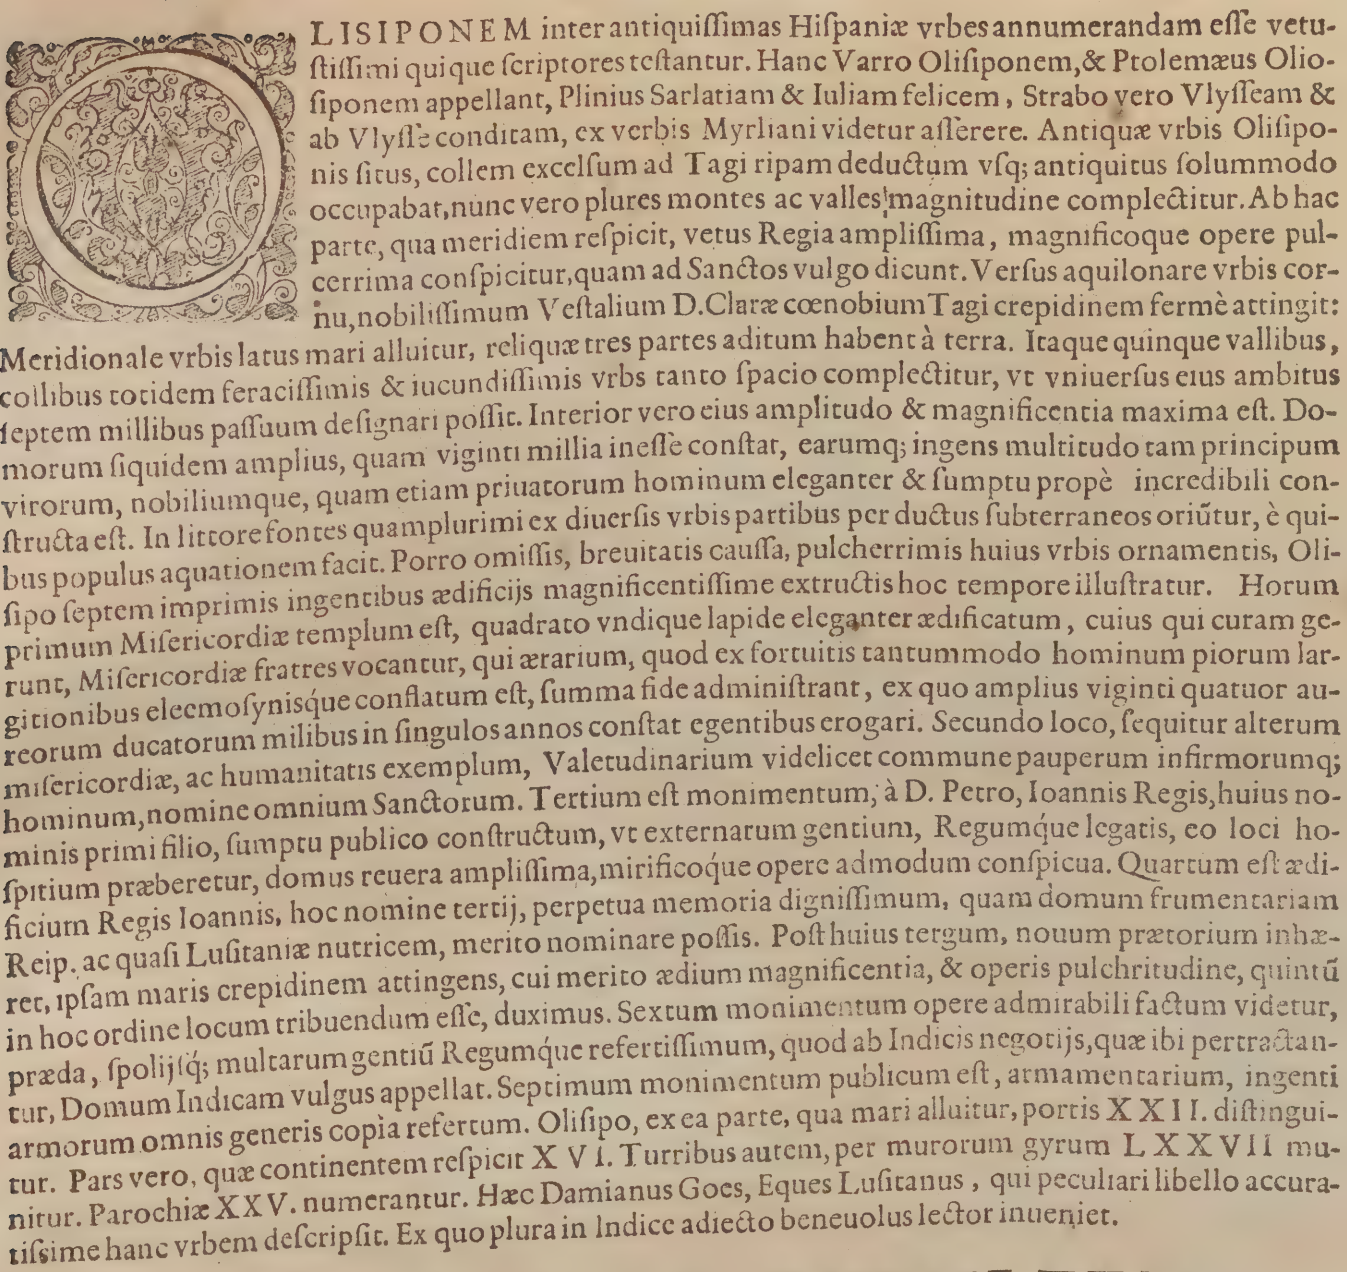 OLISIPONEM inter antiquiſſimas Hiſpaniæ vrbes annumerandam eſſe vetu-
ſtiſſimi quique ſcriptores teſtantur. Hanc Varro Oliſiponem, & Ptolemæus Olio-
ſiponem appellant, Plinius Sarlatiam & Iuliam felicem, Strabo vero Vlyſſeam &
ab Vlyſſe conditam, ex verbis Myrliani videtur aſſerere. Antiquæ vrbis Oliſipo-
nis ſitus, collem excelſum ad Tagi ripam deductum vſq; antiquitus ſolummodo
occupabat, nunc vero plures montes ac valles magnitudine complectitur. Ab hac
parte, qua meridiem reſpicit, vetus Regia ampliſſima, magnificoque opere pul-
cerrima conſpicitur, quam ad Sanctos vulgo dicunt. Verſus aquilonare vrbis cor-
nu, nobiliſſimum Veſtalium D. Claræ cœnobium Tagi crepidinem fermè attingit:
Meridionale vrbis latus mari alluitur, reliquæ tres partes aditum habent à terra. Itaque quinque vallibus,
collibus totidem feraciſſimis & iucundiſſimis vrbs tanto ſpacio complectitur, vt vniuerſus eius ambitus
ſeptem millibus paſſuum deſignari poſſit. Interior vero eius amplitudo & magnificentia maxima eſt. Do-
morum ſiquidem amplius, quam viginti millia ineſſe conſtat, earumq; ingens multitudo tam principum
virorum, nobiliumque, quam etiam priuatorum hominum eleganter & ſumptu propè incredibili con-
ſtructa eſt. In littore fontes quamplurimi ex diuerſis vrbis partibus per ductus ſubterraneos oriũtur, è qui-
bus populus aquationem facit. Porro omiſſis, breuitatis cauſſa, pulcherrimis huius vrbis ornamentis, Oli-
ſipo ſeptem imprimis ingentibus ædificijs magnificentiſſime extructis hoc tempore illuſtratur. Horum
primum Miſericordiæ templum eſt, quadrato vndique lapide eleganter ædificatum, cuius qui curam ge-
runt, Miſericordiæ fratres vocantur, qui ærarium, quod ex fortuitis tantummodo hominum piorum lar-
gitionibus eleemoſynisq́ue conflatum eſt, ſumma fide adminiſtrant, ex quo amplius viginti quatuor au-
reorum ducatorum milibus in ſingulos annos conſtat egentibus erogari. Secundo loco, ſequitur alterum
miſericordiæ, ac humanitatis exemplum, Valetudinarium videlicet commune pauperum infirmorumq;
hominum, nomine omnium Sanctorum. Tertium eſt monimentum, à D. Petro, Ioannis Regis, huius no-
minis primi filio, ſumptu publico conſtructum, vt externarum gentium, Regumq́ue legatis, eo loci ho-
ſpitium præberetur, domus reuera ampliſſima, mirificoq́ue opere admodum conſpicua. Quartum eſt ædi-
ficium Regis Ioannis, hoc nomine tertij, perpetua memoria digniſſimum, quam domum frumentariam
Reip. ac quaſi Luſitaniæ nutricem, merito nominare poſſis. Poſt huius tergum, nouum prætorium inhæ-
ret, ipſam maris crepidinem attingens, cui merito ædium magnificentia, & operis pulchritudine, quintũ
in hoc ordine locum tribuendum eſſe, duximus. Sextum monimentum opere admirabili factum videtur,
præda, ſpolijſq́; multarum gentiũ Regumq́ue refertiſſimum, quod ab Indicis negotijs, quæ ibi pertractan-
tur, Domum Indicam vulgus appellat. Septimum monimentum publicum eſt, armamentarium, ingenti
armorum omnis generis copia refertum. Oliſipo, ex ea parte, qua mari alluitur, portis XXII. diſtingui-
tur. Pars vero, quæ continentem reſpicit XVI. Turribus autem, per murorum gyrum LXXVII mu-
nitur. Parochiæ XXV. numerantur. Hæc Damianus Goes, Eques Luſitanus, qui peculiari libello accura-
tiſsime hanc vrbem deſcripſit. Ex quo plura in Indice adiecto beneuolus lector inueniet.